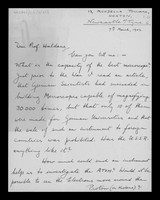 HEATON,
Newcastle
March,
Dear Prof. Haldane,
Can you tell me :-
What is the capacity of the best microscope?
Just prior to the War I read an article,
that German Scientists had succeeded in
building Microscopes capable of magnifying
30,000 times, but that only 12 of these
was made for German Universities and that
the sale of such an instrument to foreign
countries was prohibited. Has the U.S.S.R.
anything like it?
How much could such an instrument
help us to investigate the ATOM? Would it be
possible to see the Electrons move around their